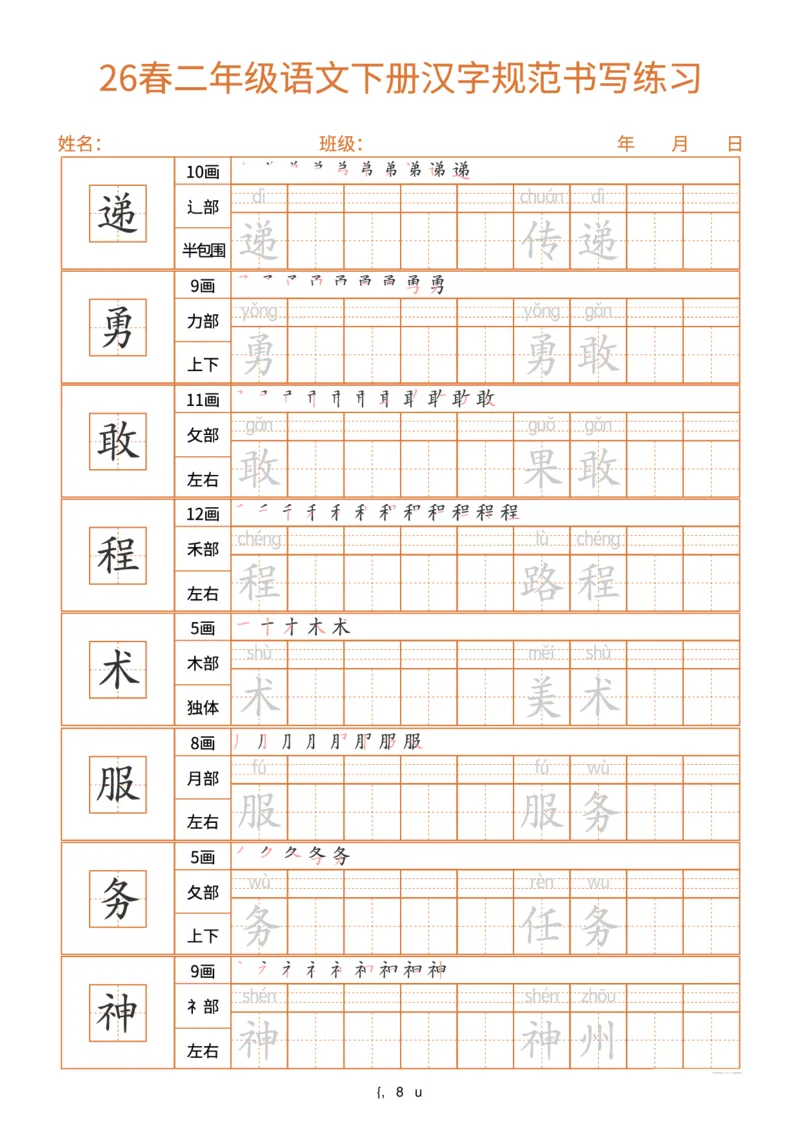 26春二年级语文下册汉字规范书写练习
姓名： 班级： 年 月 日
递 10画
辶部 dì chuán dì
半包围 递 传 递
勇 9画
力部 yǒng yǒng gǎn
上下 勇 勇 敢
敢 11画
攵部 gǎn guǒ gǎn
左右 敢 果 敢
程 12画
禾部 chéng lù chéng
左右 程 路 程
术 5画
木部 shù měi shù
独体 术 美 术
服 8画
月部 fú fú wù
左右 服 服 务
务 5画
夂部 wù rèn wu
上下 务 任 务
神 9画
礻部 shén shén zhōu
左右 神 神 州
{, 8 u